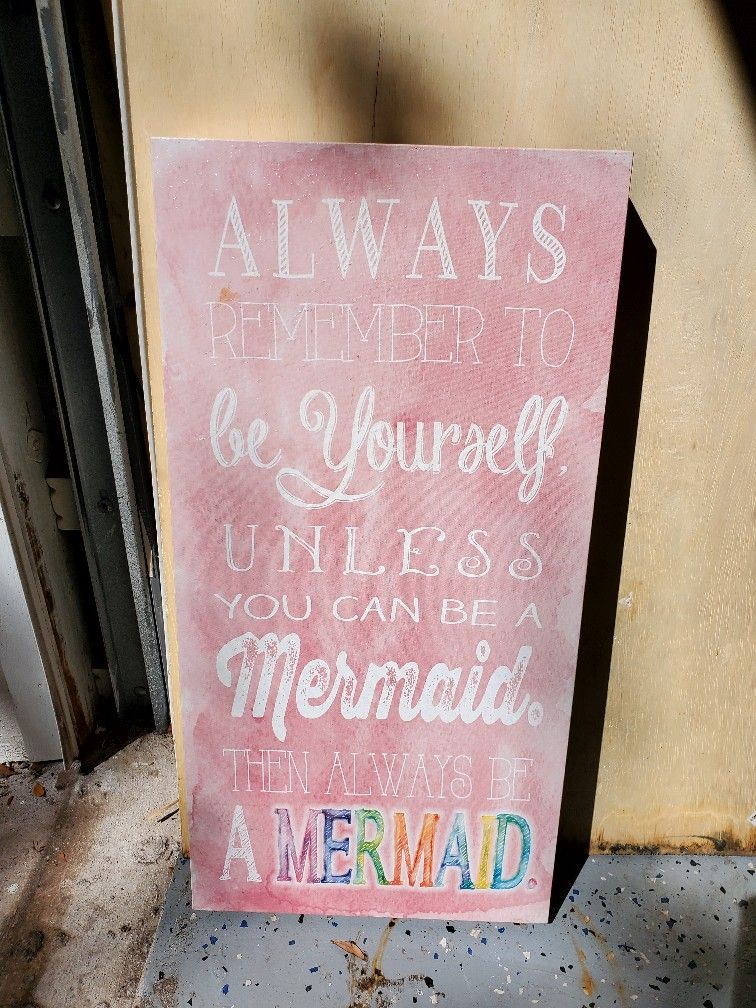 ALWAYS
REMEMBER TO
be Yourself,
UNLESS
YOU CAN BE A
Mermaid.
THEN ALWAYS BE
A MERMAID.